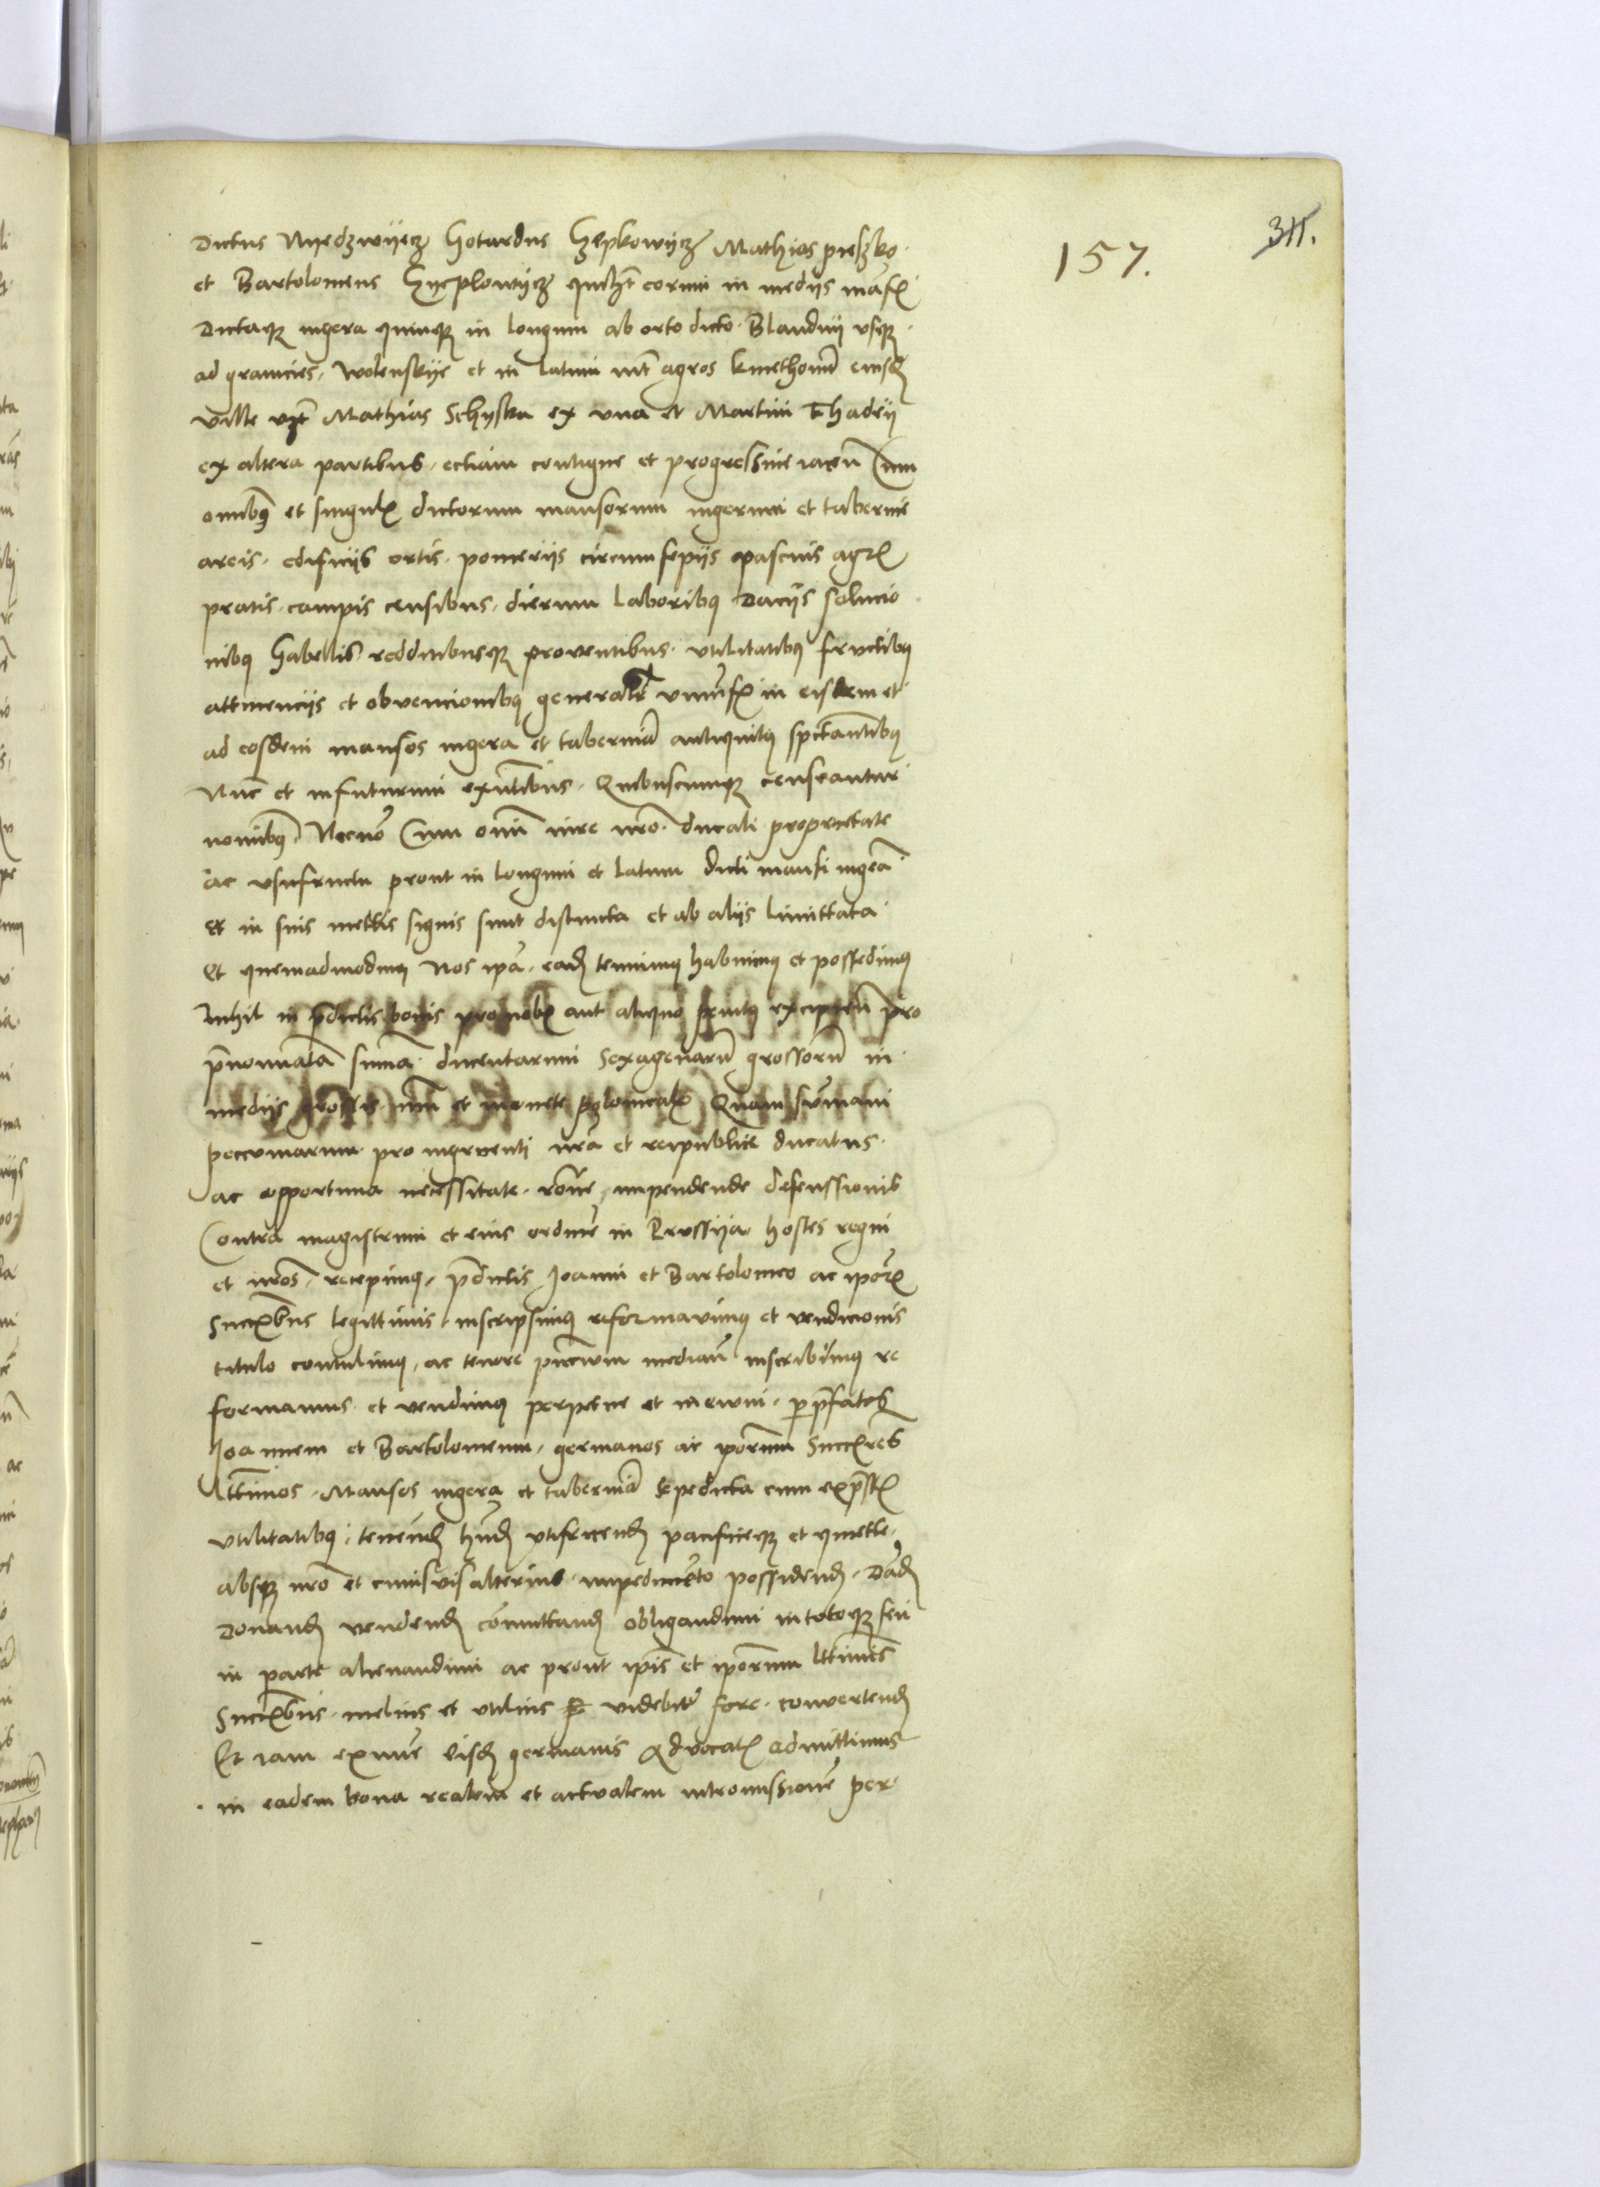 157.
311.
Dictus Nyedzwyecz Gotardus Czepkowycz Mathias pieszko
et Bartolomeus quilibet eorum in medijs mansis
Dictaque iugera quinque in longum ab orto dicto Blandny usque
ad granicies Wolenskye et in latum inter agros kmethonum eiusdem
ville videlicet Mathias Schyska ex una et Martini Thadey
ex altera partibus, eciam contigue et progressive iacentem Cum
omnibus et singulis dictorum mansorum iugerum et taberne
areis edificijs ortis pomerijs circumsepijs pascuis agris
pratis campis censibus dierum laboribus Dacijs solucio
nibus Gabellis redditibusque proventibus utilitatibus fructibus
attinencijs et obvencionibus generaliter universis in eisdem et
ad eosdem mansos iugera et tabernam antiquitus spectantibus
Nunc et infuturum existentibus Quibuscumque censeantur
nominibus Necnon Cum omni iure nostro ducali proprietate
ac usufructu prout in longum et latum dicti mansi iugera
et in suis mettis signis sunt distincta et ab alijs limittata
Et quemadmodum Nos ipsa eadem tenuimus habuimus et possedimus
Nihil in predictis bonis pro nobis aut aliquo penitus excipientes pro
prenominata summa ducentarum Sexagenarum grossorum in
medijs grossis numeri et monete polonicalis Quam summam
peccuniarum pro ingruenti nostra et reipublice ducatus
ac opportuna necessitate racione impendende defenssionis
Contra magistrum et eius ordinem in Prussya hostes regni
et nostros recepimus predictis Joanni et Bartolomeo ac ipsorum
Successoribus legittimis inscripsimus reformavimus et vendicionis
titulo contulimus ac tenore presencium mediante inscribimus re
formamus et vendimus perpetue et in evum per prefatos
Joannem et Bartolomeum germanos ac ipsorum Successores
legittimos Mansos iugera et tabernam sepedicta cum expressis
utilitatibus tenendum habendum utifruendum pacificeque et quiette
absque nostro et cuiusvis alterius impedimento possidendum Dandum
Donandum vendendum commuttandum obligandum in totoque seu
in parte alienandum ac prout ipsis et ipsorum legittimis
Successoribus melius et utilius videbitur fore convertendum
Et iam ex nunc eisdem germanis Advocatis admittimus
in eadem bona realem et actualem intromissionem per